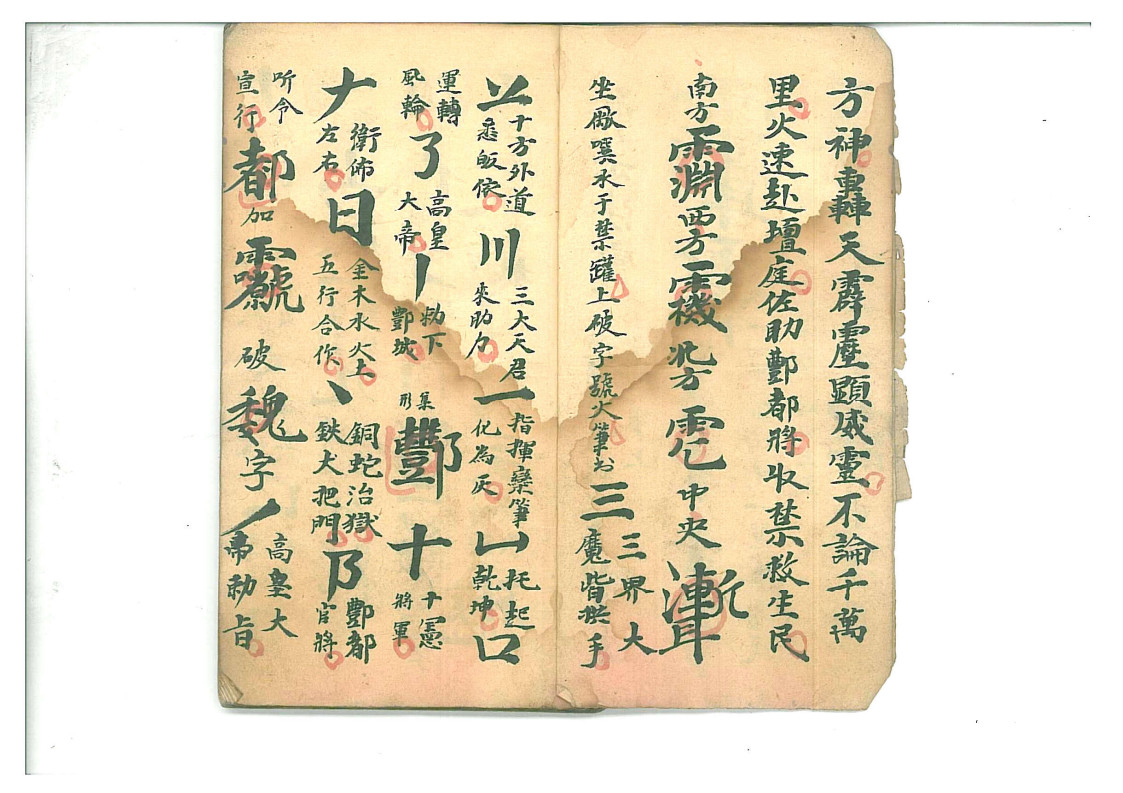 方神轟天霹靂顯威靈不論千萬
里火速赴壇庭佐助酆都將收禁救生民
南方 西方 北方 中央
坐噀水于禁罐上破字號火筆書三 三界大魔皆拱手
十方外道悉皈依川三大天君來助力一指揮欒筆化為灰凵托起乾坤口
運轉風輪了高皇大帝丨勅下酆城集形酆十十惡將軍
𠂇衛佈左右日金木水火土五行合作丶銅蛇治獄鉄犬把門阝酆都官將
听令宣行都加 破魏字丿高皇大帝勅旨